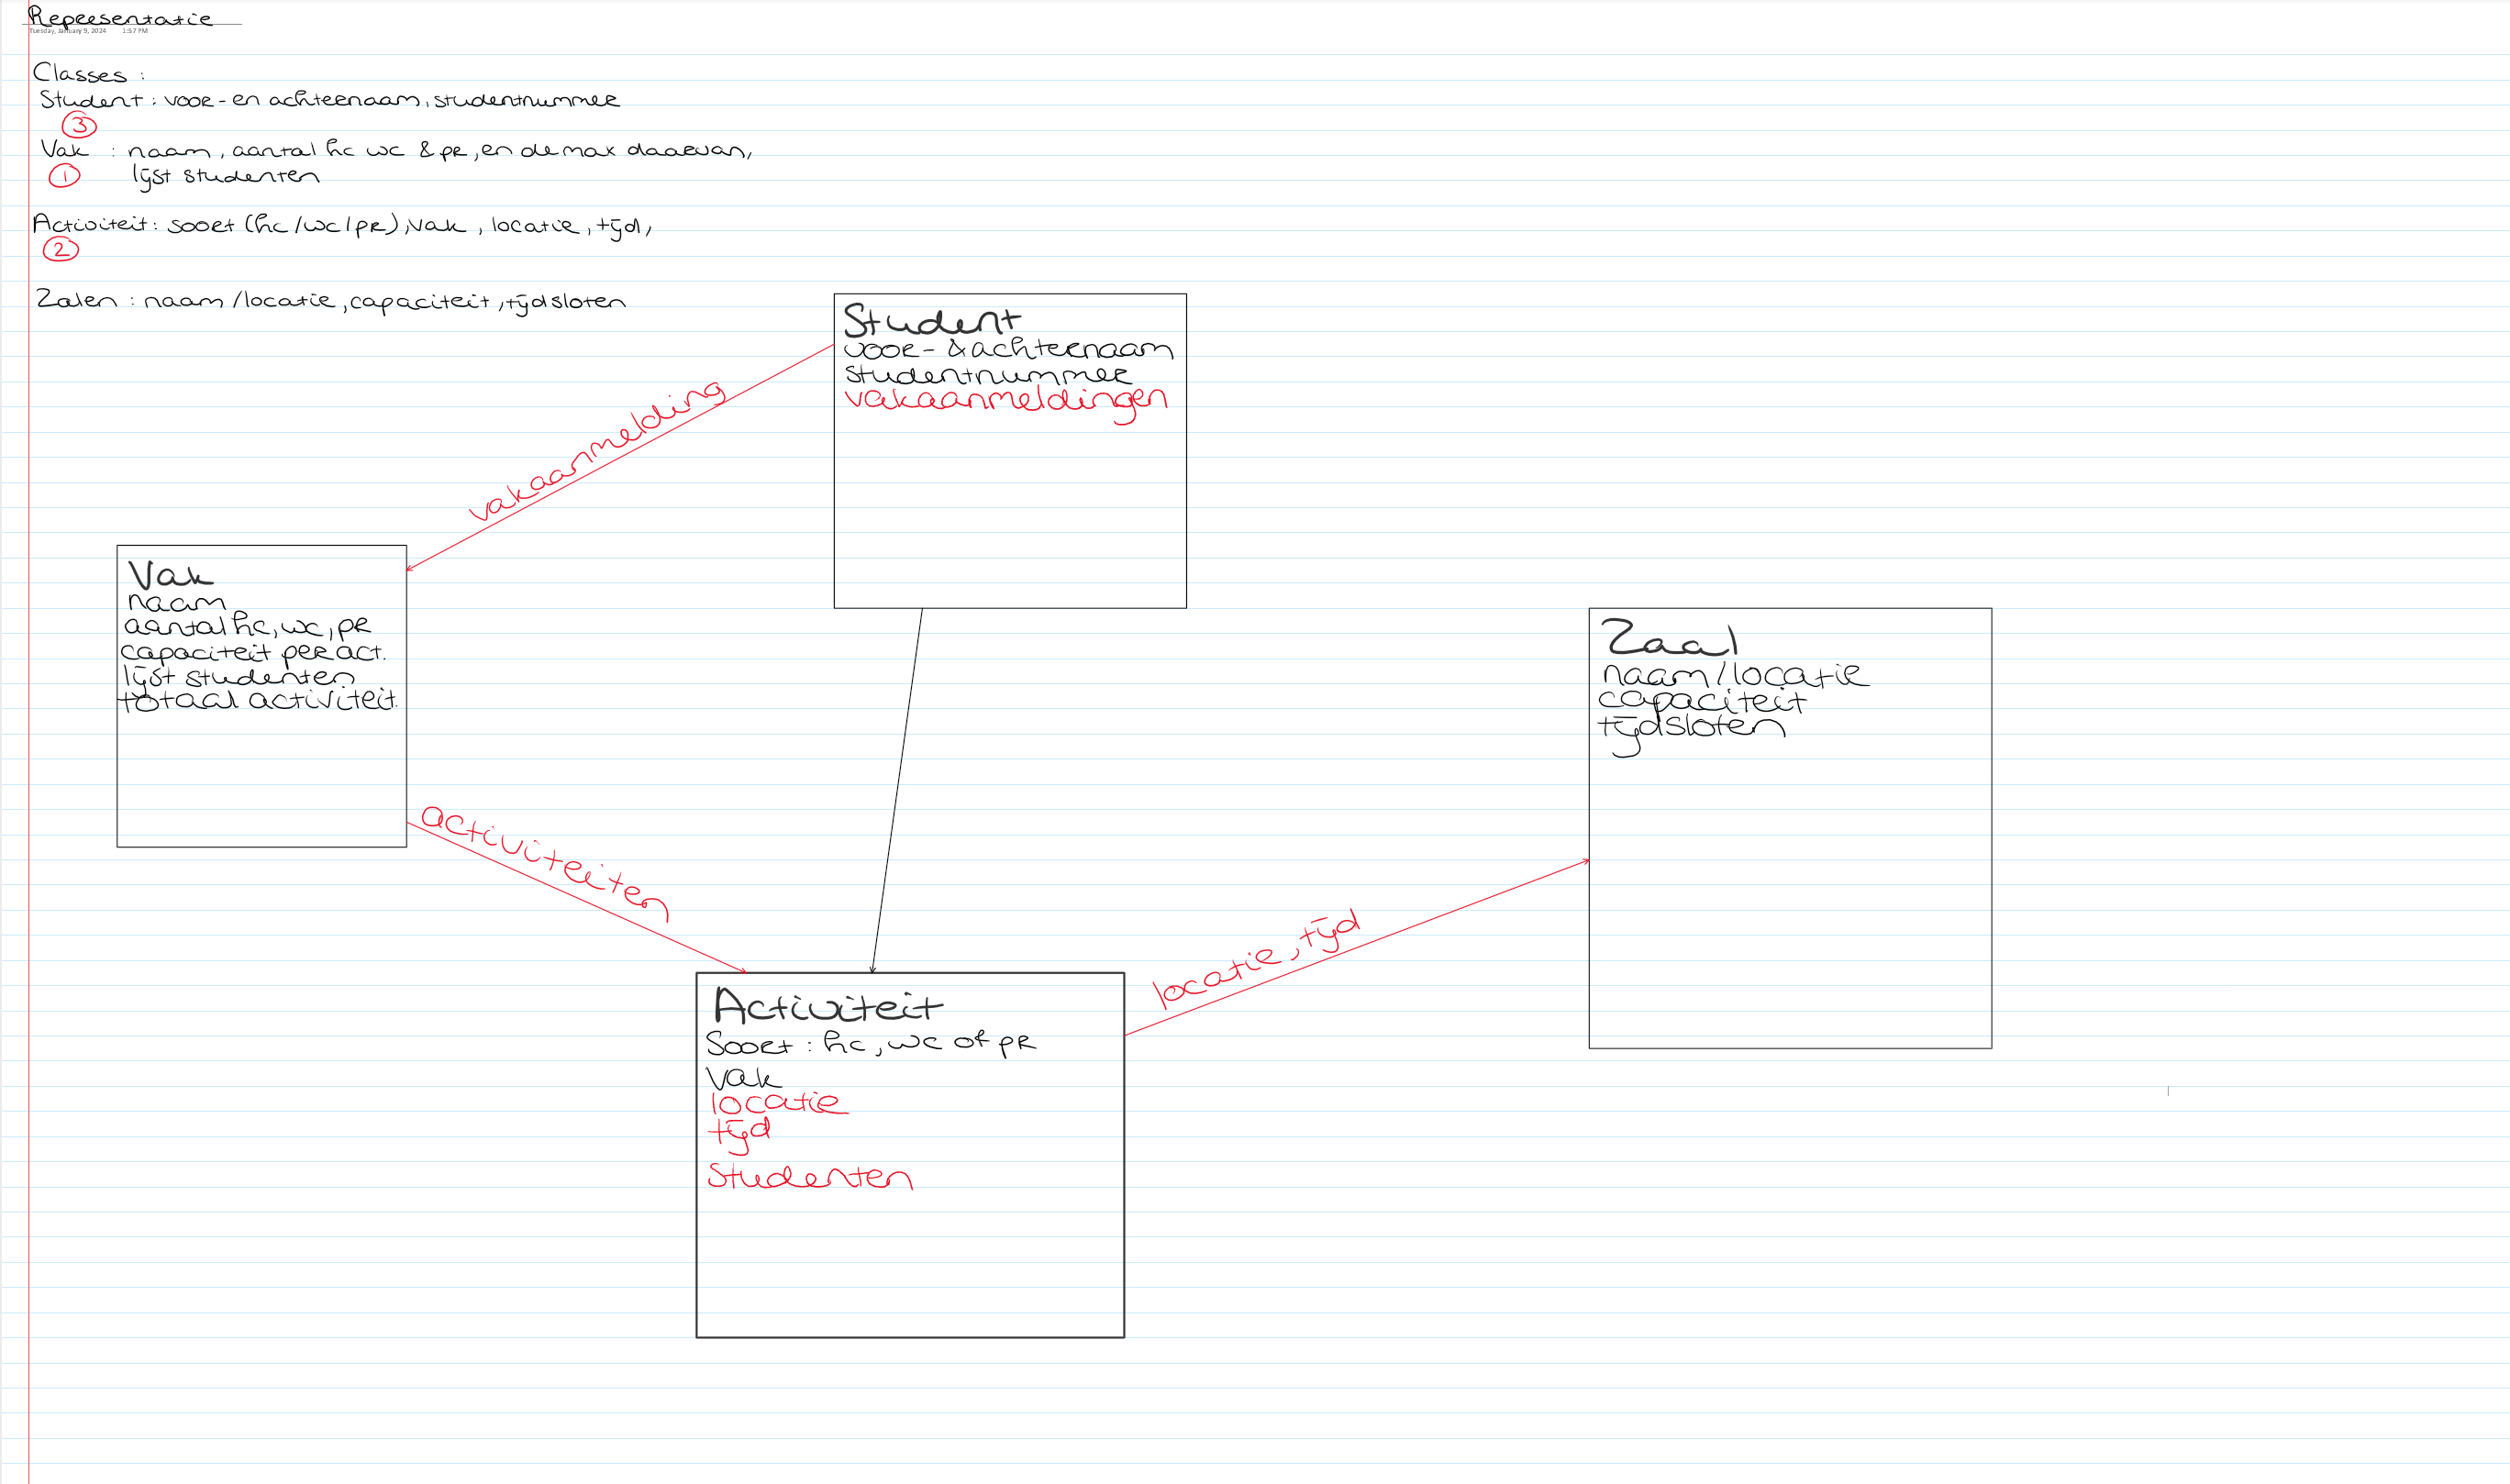 Representatie
Tuesday, January 9, 2024 1:57 PM
Classes :
Student : voor- en achternaam, studentnummer
3
Vak : naam, aantal hc wc & pr, en de max daarvan,
1
lijst studenten
Activiteit: soort (hc/wc/pr), vak, locatie, tijd,
2
Zalen : naam/locatie, capaciteit, tijdsloten
Student
voor- & achternaam
studentnummer
vakaanmeldingen
vakaanmelding
Vak
naam
aantal hc, wc, pr
capaciteit per act.
lijst studenten
totaal activiteit.
Zaal
naam/locatie
capaciteit
tijdsloten
activiteiten
locatie, tijd
Activiteit
Soort : hc, wc of pr
vak
locatie
tijd
Studenten